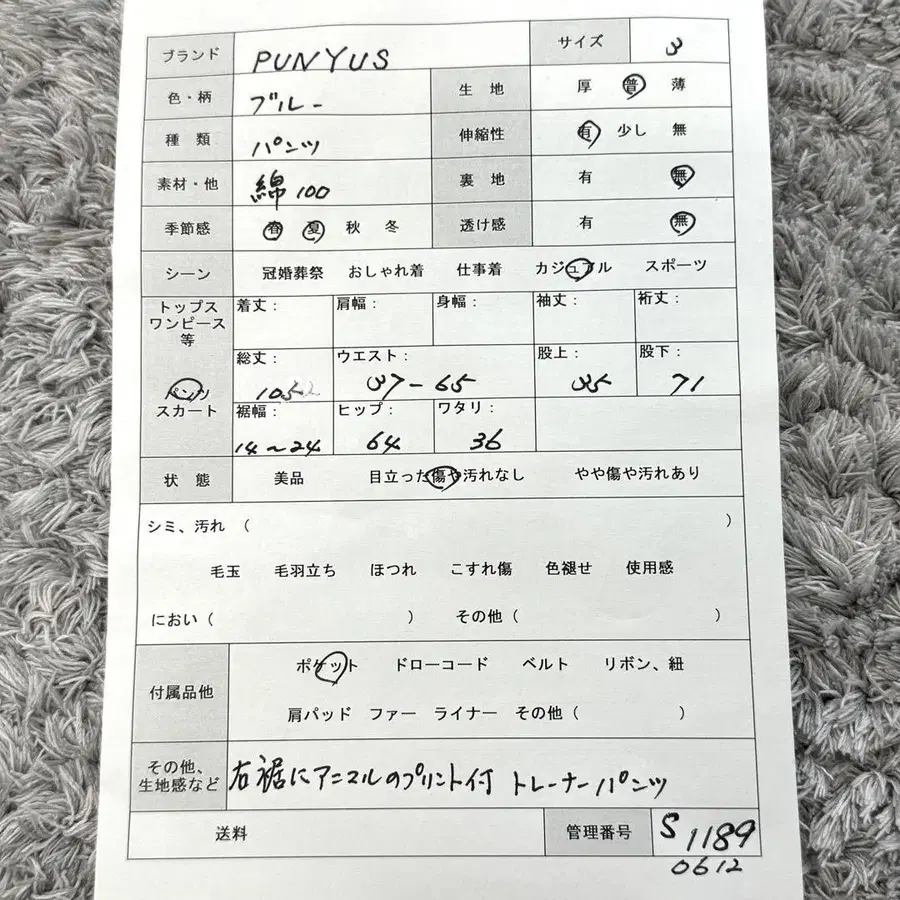 ブランド PUNYUS サイズ 3
色・柄 ブルー 生地 厚 普 薄
種類 パンツ 伸縮性 有 少し 無
素材・他 綿100 裏地 有 無
季節感 春 夏 秋 冬 透け感 有 無
シーン 冠婚葬祭 おしゃれ着 仕事着 カジュアル スポーツ
トップス
ワンピース
等
着丈： 肩幅： 身幅： 袖丈： 裄丈：
パンツ
スカート
総丈： ウエスト： 股上： 股下：
105 37-65 35 71
裾幅： ヒップ： ワタリ：
14～24 64 36
状態 美品 目立った傷や汚れなし やや傷や汚れあり
シミ、汚れ （ ）
毛玉 毛羽立ち ほつれ こすれ傷 色褪せ 使用感
におい（ ） その他（ ）
付属品他
ポケット ドローコード ベルト リボン、紐
肩パッド ファー ライナー その他（ ）
その他、
生地感など
右裾にアニマルのプリント付 トレーナーパンツ
送料 管理番号 S1189
0612